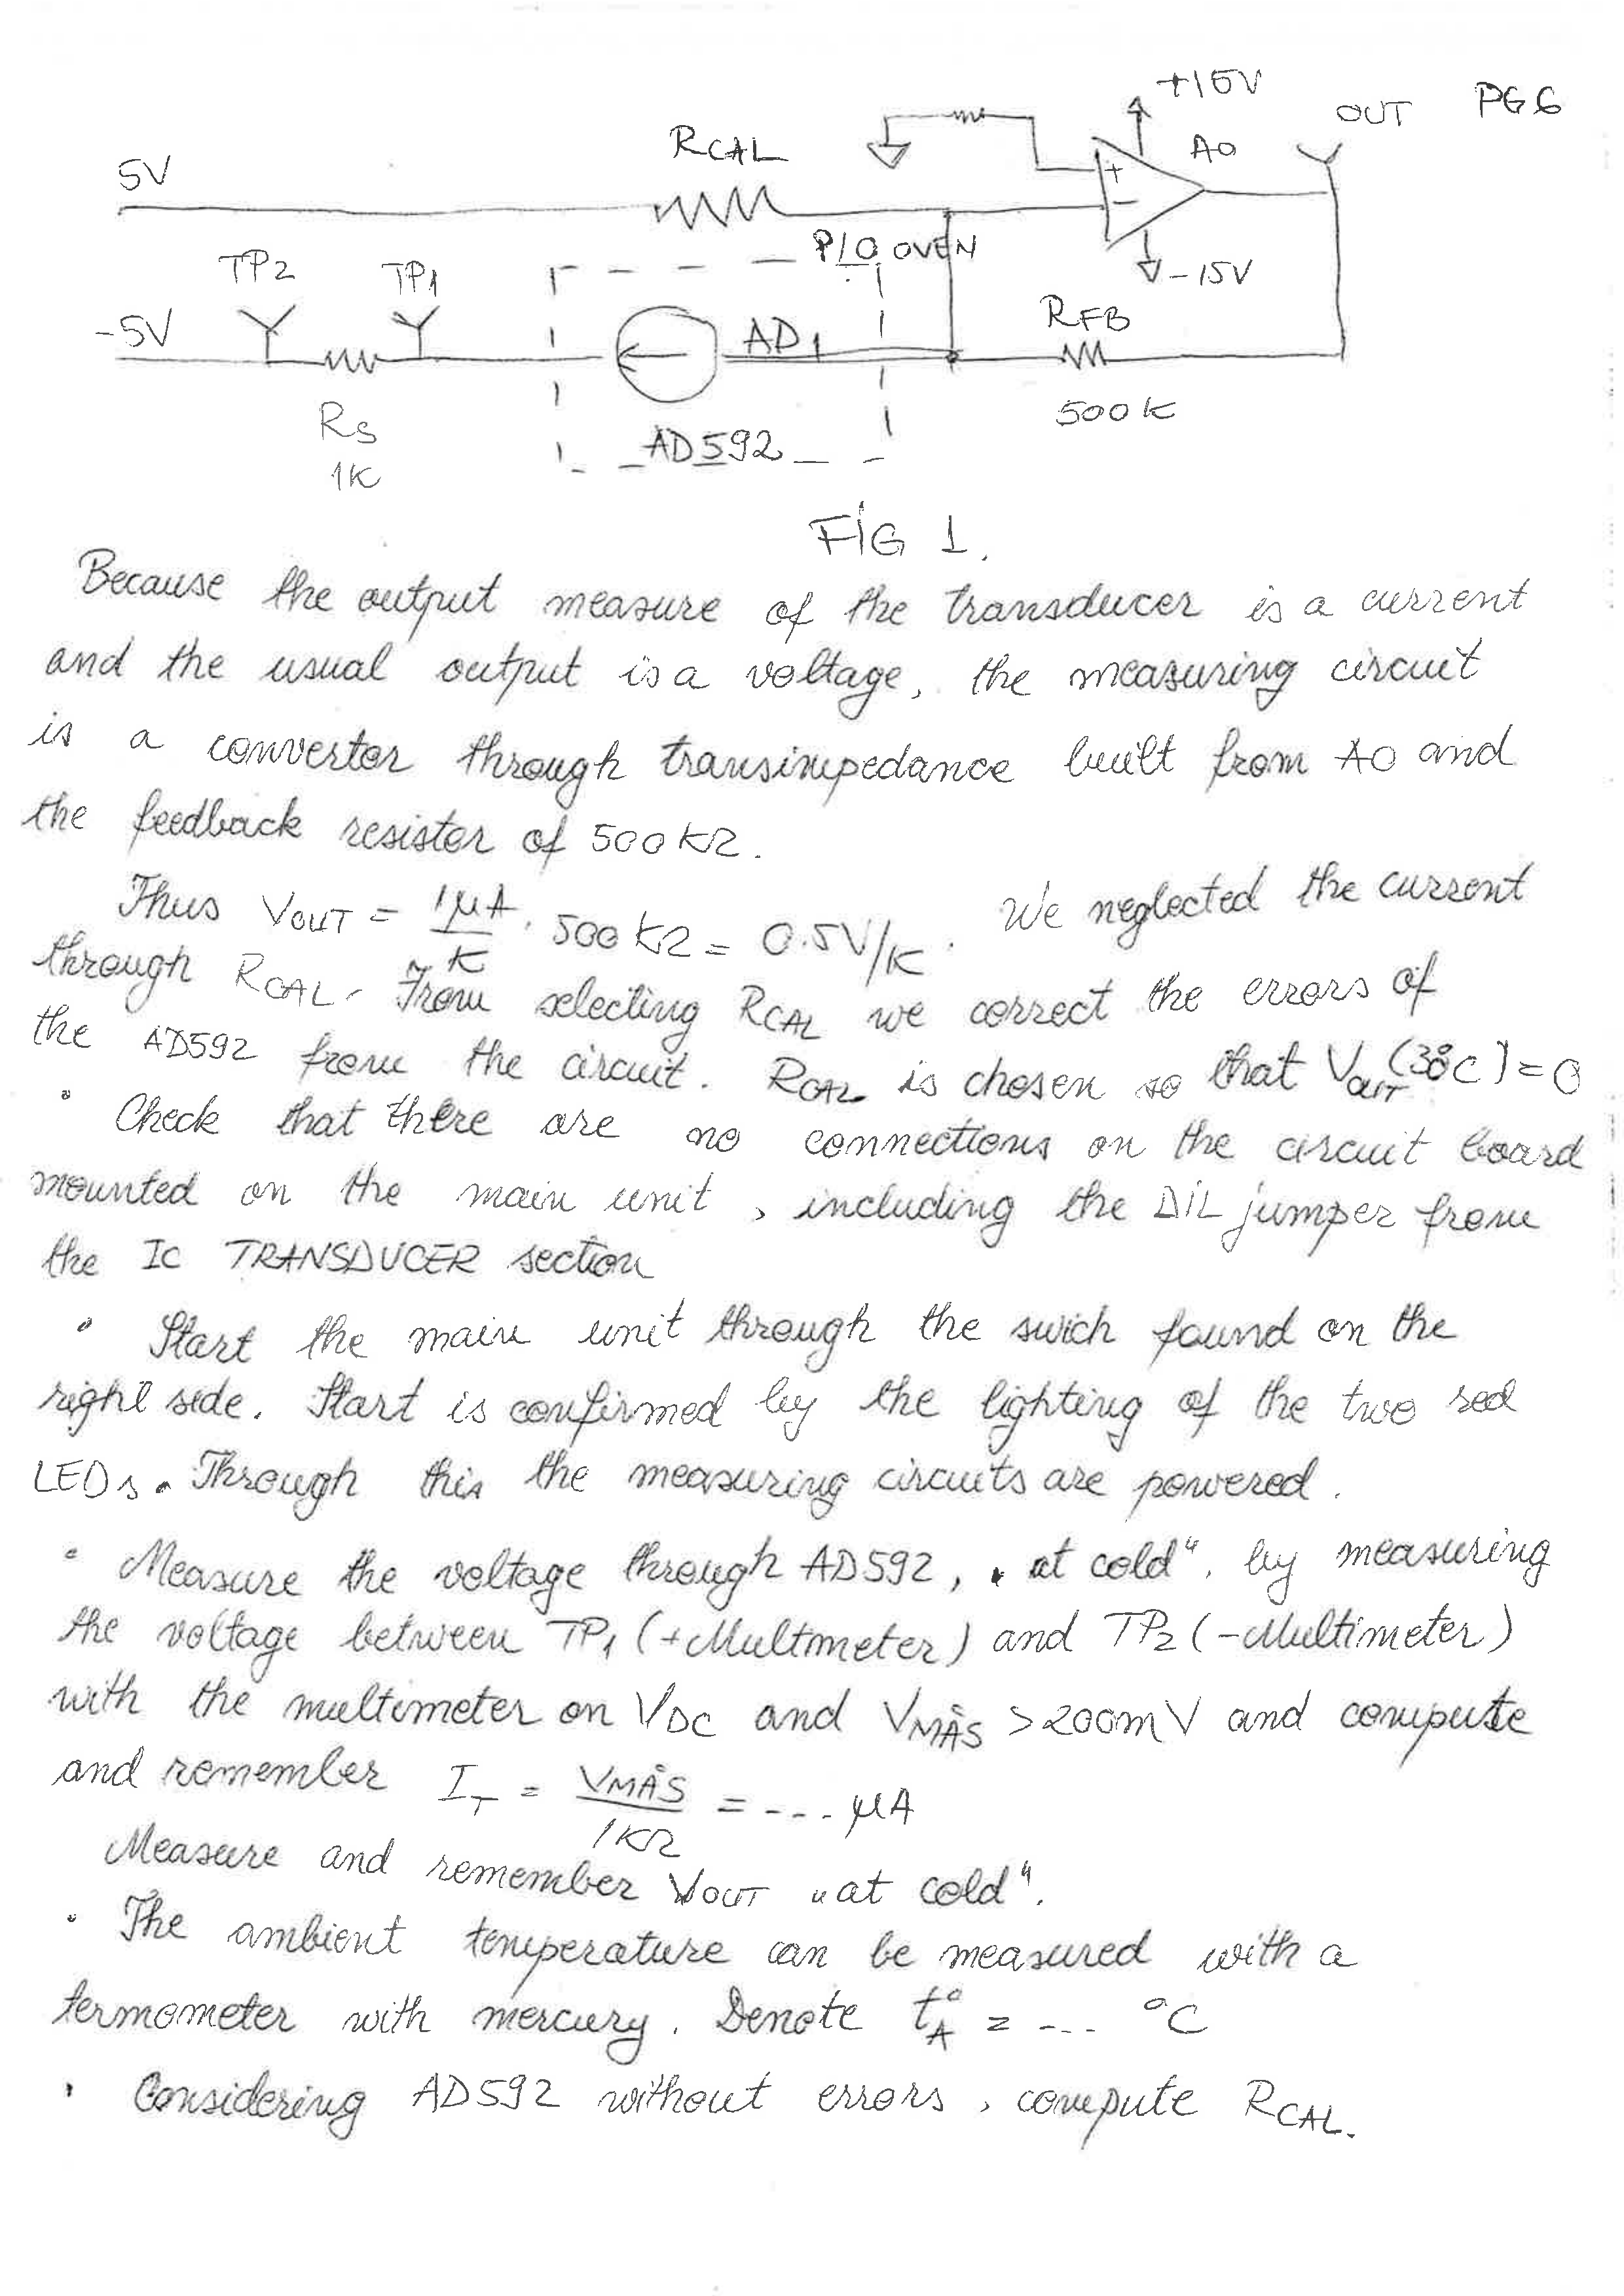 PG 6
+15V
OUT
RCAL
AO
5V
+
-
P/O OVEN
TP2
TP1
-15V
RFB
-5V
AD1
500K
RS
AD592
1K
FIG 1.
Because the output measure of the transducer is a current
and the usual output is a voltage, the measuring circuit
is a convertor through transimpedance built from AO and
the feedback resistor of 500 KΩ.
Thus VOUT = 1µA/K · 500 KΩ = 0.5V/K. We neglected the current
through RCAL. From selecting RCAL we correct the errors of
the AD592 from the circuit. RCAL is chosen so that VOUT(38°C) = 0
• Check that there are no connections on the circuit board
mounted on the main unit, including the DIL jumper from
the IC TRANSDUCER section
• Start the main unit through the swich found on the
right side. Start is confirmed by the lighting of the two red
LEDs. Through this the measuring circuits are powered.
• Measure the voltage through AD592, „at cold", by measuring
the voltage between TP1 (+Multmeter) and TP2 (-Multimeter)
with the multimeter on VDC and VMĂS > 200mV and compute
and remember IT = VMĂS/1KΩ = --- µA
Measure and remember VOUT „at cold".
• The ambient temperature can be measured with a
termometer with mercury. Denote t°A = --- °C
• Considering AD592 without errors, compute RCAL.